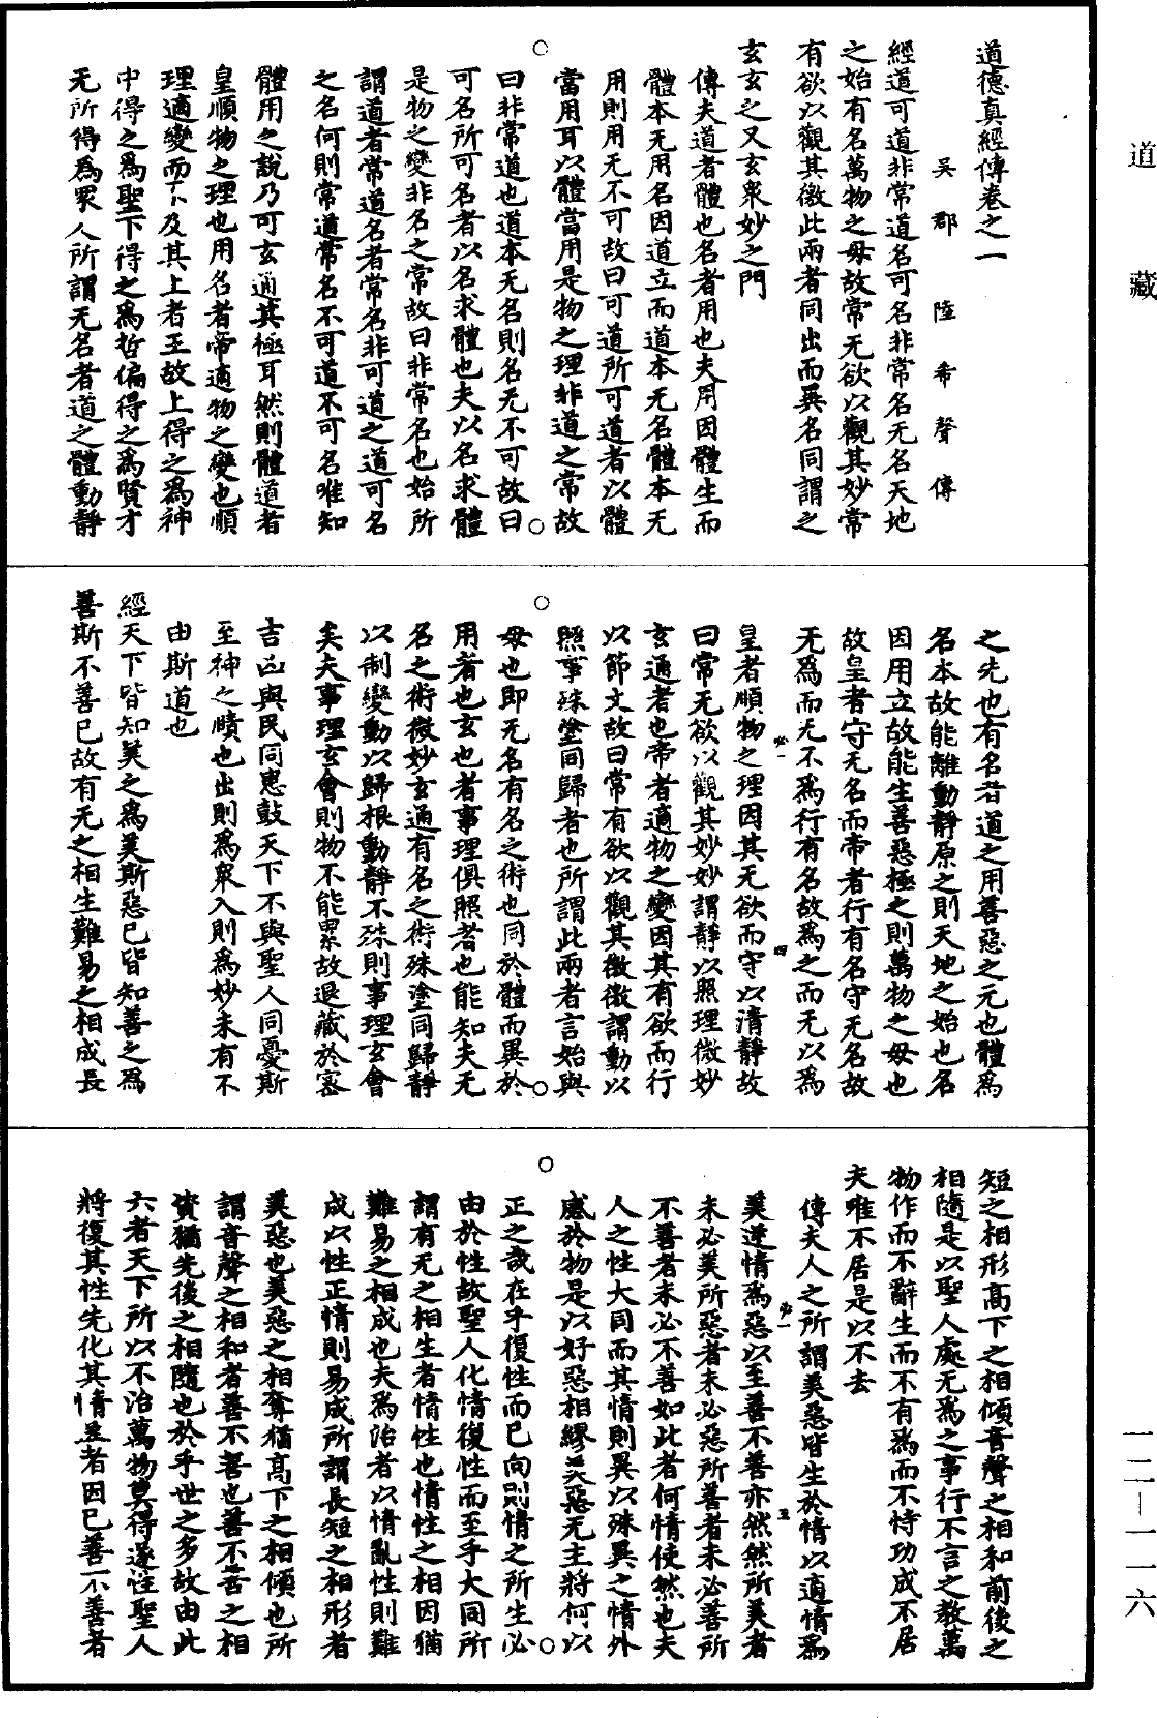 道藏
道德真經傳卷之一
吳郡陸希聲傳
經道可道非常道名可名非常名无名天地
之始有名萬物之母故常无欲以觀其妙常
有欲以觀其徼此兩者同出而異名同謂之
玄玄之又玄衆妙之門
傳夫道者體也名者用也夫用因體生而
體本无用名因道立而道本无名體本无
用則用无不可故曰可道所可道者以體
當用耳以體當用是物之理非道之常故
曰非常道也道本无名則名无不可故曰
可名所可名者以名求體也夫以名求體
是物之變非名之常故曰非常名也始所
謂道者常道名者常名非可道之道可名
之名何則常道常名不可道不可名唯知
體用之說乃可玄通其極耳然則體道者
皇順物之理也用名者帝適物之變也順
理適變而下及其上者王故上得之爲神
中得之爲聖下得之爲哲偏得之爲賢才
无所得爲眾人所謂无名者道之體動靜
之先也有名者道之用善惡之元也體爲
名本故能離動靜原之則天地之始也名
因用立故能生善惡極之則萬物之母也
故皇者守无名而帝者行有名守无名故
无爲而无不爲行有名故爲之而无以爲
皇者順物之理因其无欲而守以清靜故
曰常无欲以觀其妙妙謂靜以照理微妙
玄通者也帝者適物之變因其有欲而行
以節文故曰常有欲以觀其徼徼謂動以
照事殊塗同歸者也所謂此兩者言始與
母也即无名有名之術也同於體而異於
用者也玄也者事理俱照者也能知夫无
名之術微妙玄通有名之術殊塗同歸靜
以制變動以歸根動靜不殊則事理玄會
矣夫事理玄會則物不能累故退藏於密
吉凶與民同患鼓天下不與聖人同憂斯
至神之賾也出則爲衆入則爲妙未有不
由斯道也
經天下皆知美之爲美斯惡已皆知善之爲
善斯不善已故有无之相生難易之相成長
短之相形高下之相傾音聲之相和前後之
相隨是以聖人處无爲之事行不言之教萬
物作而不辭生而不有爲而不恃功成不居
夫唯不居是以不去
傳夫人之所謂美惡皆生於情以適情爲
美逆情爲惡以至善不善亦然然所美者
未必美所惡者未必惡所善者未必善所
不善者未必不善如此者何情使然也夫
人之性大同而其情則異以殊異之情外
感於物是以好惡相繆美惡无主將何以
正之哉在乎復性而已向則情之所生必
由於性故聖人化情復性而至乎大同所
謂有无之相生者情性也情性之相因猶
難易之相成也夫爲治者以情亂性則難
成以性正情則易成所謂長短之相形者
美惡也美惡之相奪猶高下之相傾也所
謂音聲之相和者善不善也善不善之相
資猶先後之相隨也於乎世之多故由此
六者天下所以不治萬物莫得遂性聖人
將復其性先化其情善者因已善不善者
一二—一一六